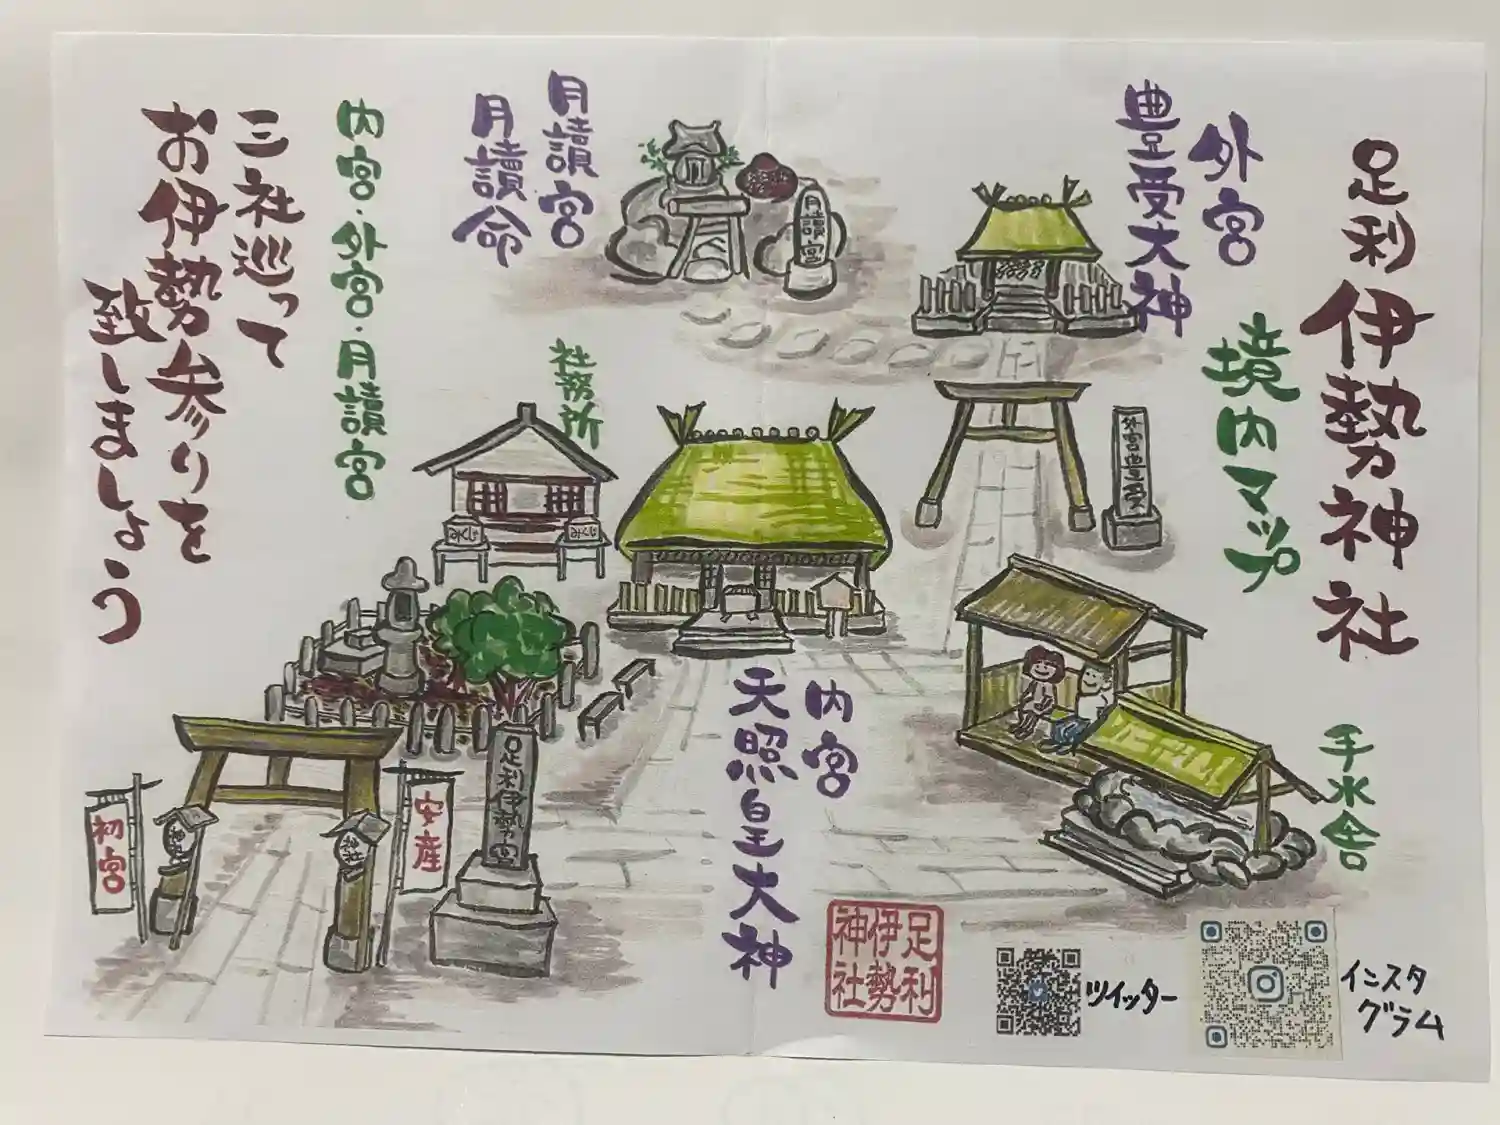 足利
伊勢神社
境内マップ
外宮
豊受大神
月讀宮
月讀命
内宮・外宮・月讀宮
三社巡って
お伊勢参りを
致しましょう
月讀宮
社務所
みくじ
みくじ
外宮豊受
内宮
天照皇大神
手水舎
初宮
安産
足利伊勢宮
足利
伊勢
神社
ツイッター
インスタ
グラム